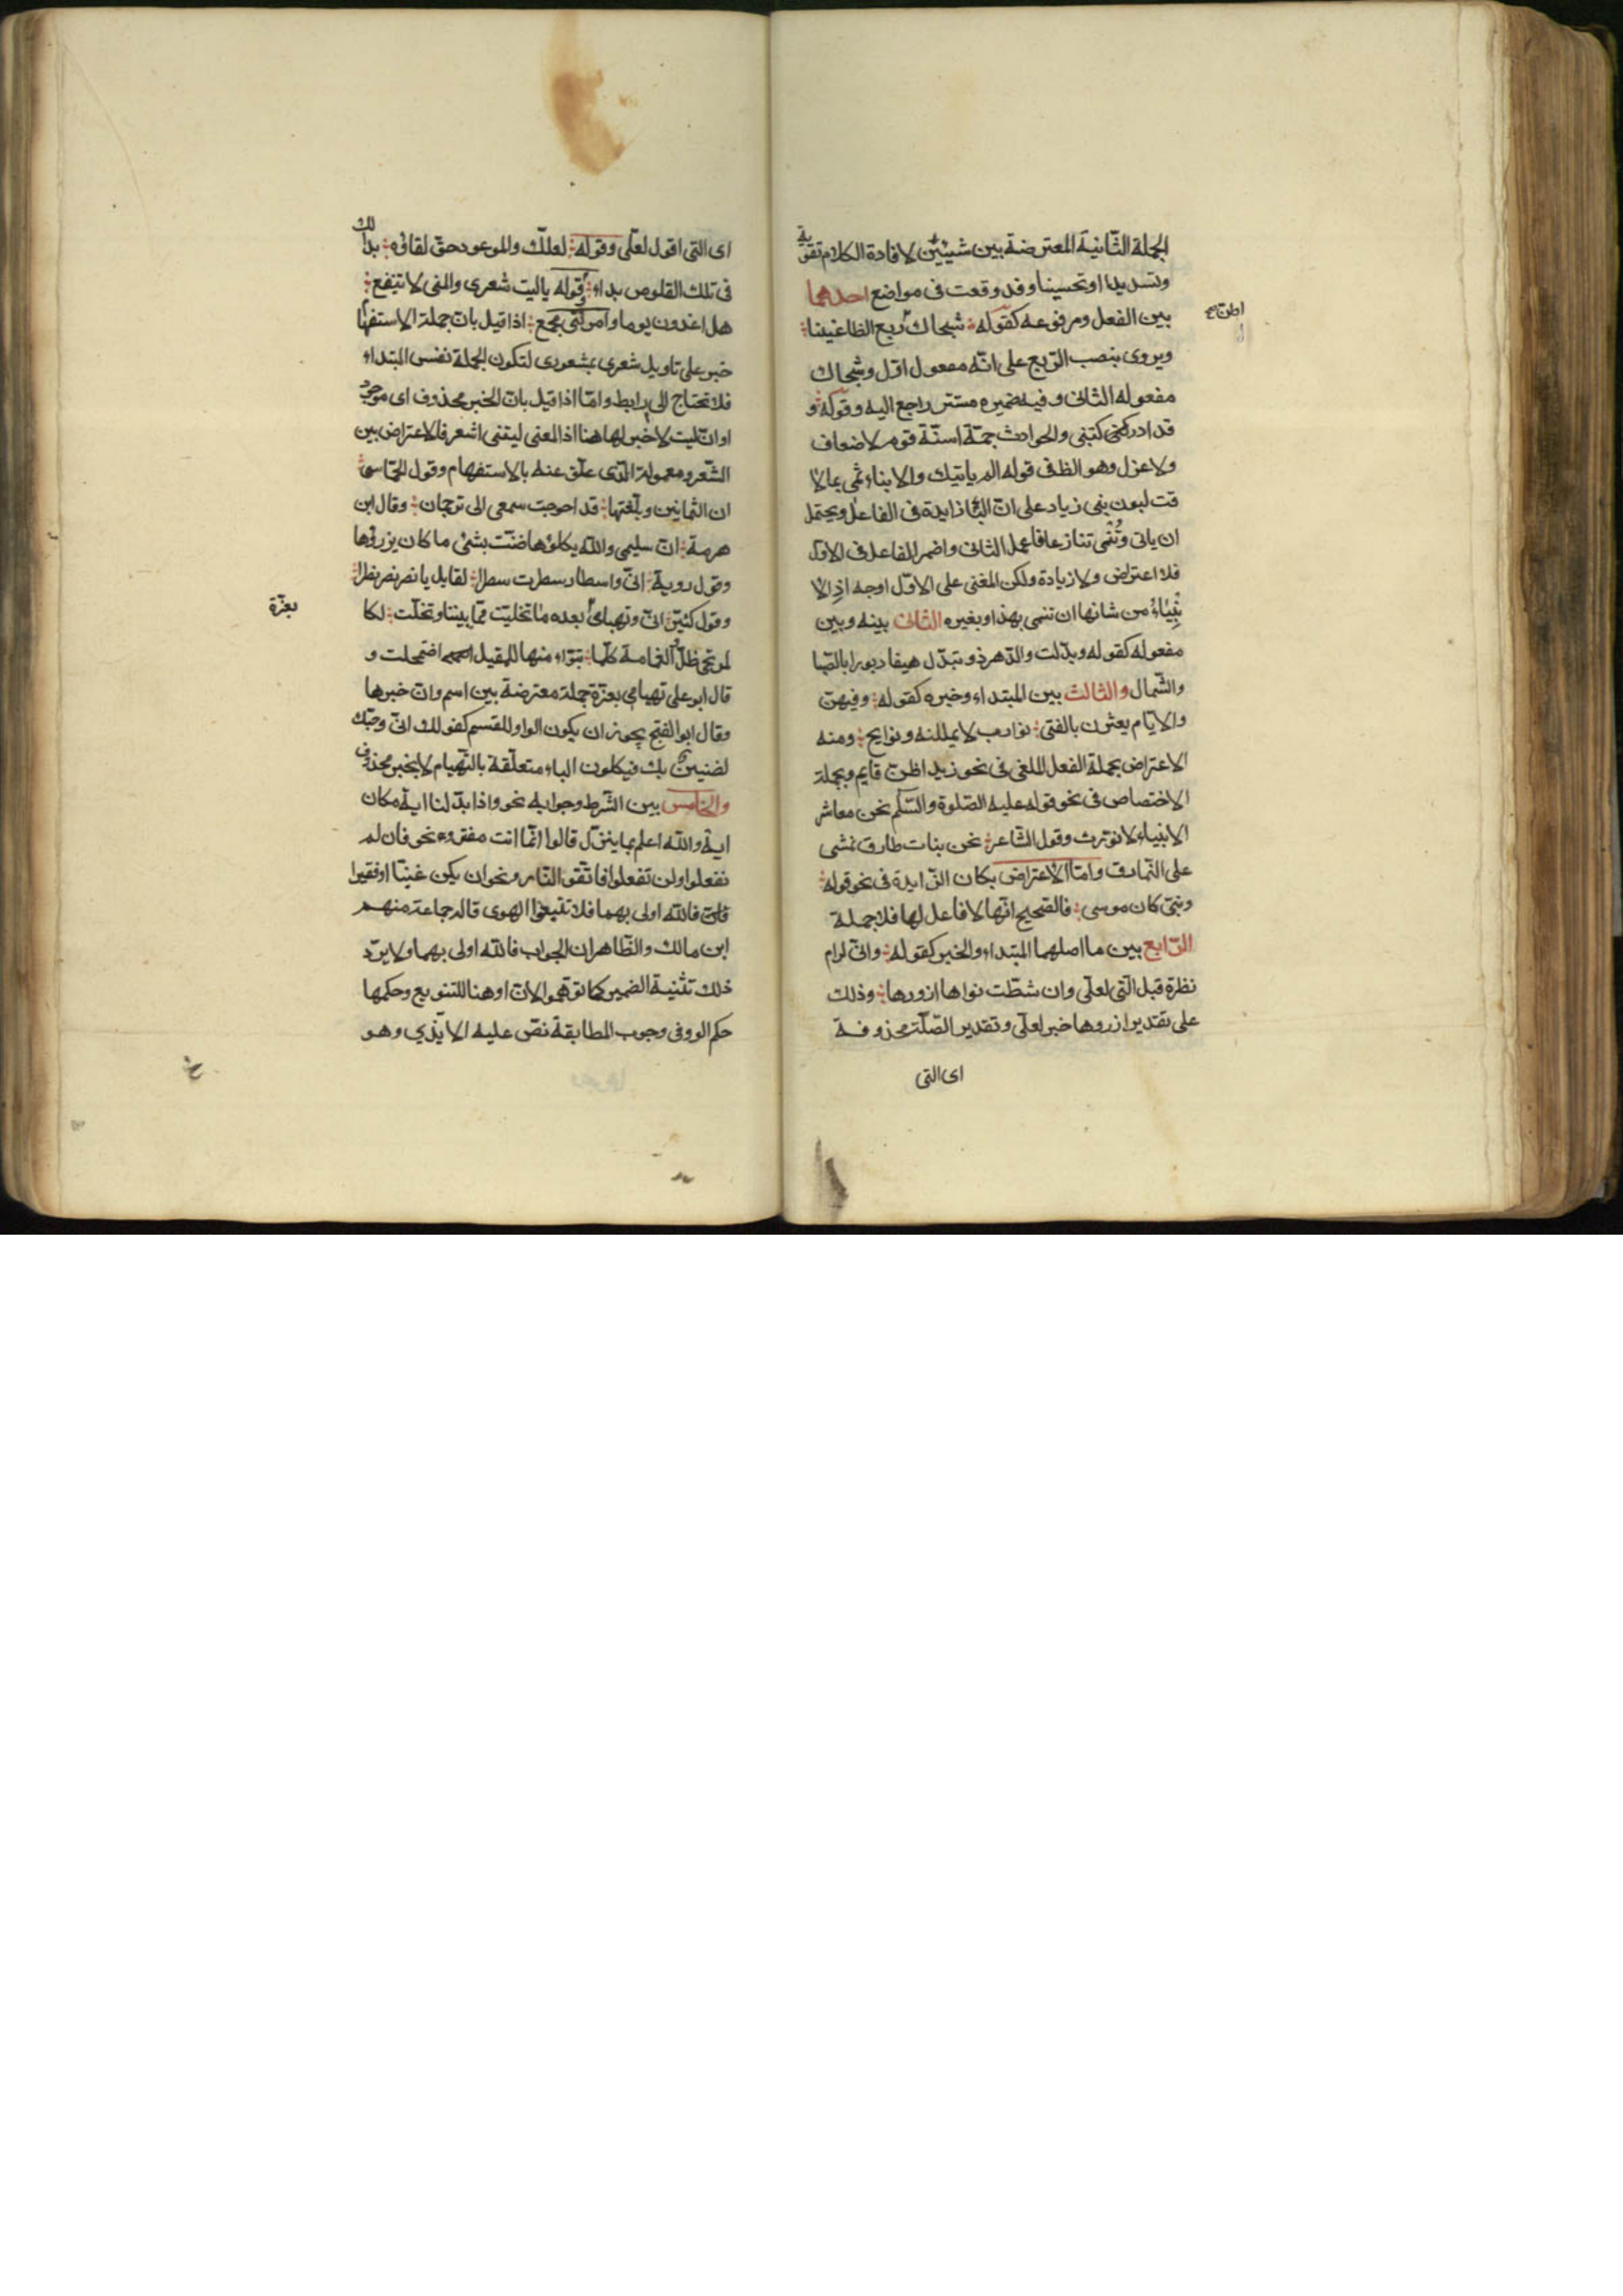 الجملة الثّانية المعترضة بين شيئين لافادة الكلام تقوية
وتسديدا او تحسينا وقد وقعت فى مواضع احدهما
بين الفعل ومرفوعه كقوله شجاك ربع الظاعنينا
اظن صح
ويروى بنصب الرّبع على انّه مفعول اوّل وشجاك
مفعوله الثانى وفيه ضمير مستتر راجع اليه وقوله و
قد ادركتنى والحوادث جمّة اسنّة قوم لا ضعاف
ولا عزل وهو الظ فى قوله الم ياتيك والابناء تمى بما لا
قت لبون بنى زياد على انّ البا زايدة فى الفاعل ويحتمل
ان ياتى وتُنمى تنازعا فاعمل الثانى واضمر الفاعل فى الاول
فلا اعتراض ولا زيادة ولكن المغنى على الاوّل اوجه اذ الا
نبياء من شانها ان تنمى بهذا وبغيره الثانى بينه وبين
مفعوله كقوله وبدّلت والدّهر ذو تبدّل هيفا دبورا بالصّبا
والشّمال والثالث بين المبتداء وخبره كقوله وفيهن
والايّام يعثرن بالفتى نوادب لا يمللنه ونوايح ومنه
الاعتراض بجملة الفعل الملغى فى نحو زيد اظنّ قايم وبجملة
الاختصاص فى نحو قوله عليه الصّلوة والسّلم نحن معاشر
الانبياء لا نورث وقول الشّاعر نحن بنات طارق نمشى
على النّمارق وامّا الاعتراض بكان الزّايدة فى نحو قوله
ونبىّ كان موسى فالصّحيح انّها لا فاعل لها فلا جملة
الرّابع بين ما اصلهما المبتداء والخبر كقوله وانّى لرام
نظرة قبل الّتى لعلّى وان شطّت نواها ازورها وذلك
على تقدير ازروها خبر لعلّى وتقدير الصّلة محذوفة
اى التى
اى التى اقول لعلّى وقوله لعلّك والموعود حقّ لقائه بدا لك
فى تلك القلوص بداء وقوله ياليت شعرى والمنى لا تنفع
هل اغدون يوما وامرى مجمع اذا قيل بانّ جملة الاستفها
خبر على تاويل شعرى بمشعورى لتكون الجملة نفس المبتداء
فلا تحتاج الى رابط وامّا اذا قيل بانّ الخبر محذوف اى موجود
او انّ ليت لا خبر لها هنا اذ المعنى ليتنى اشعر فالاعتراض بين
الشّعر ومعموله الّذى علّق عنه بالاستفهام وقول الحماسى
ان الثمانين وبلّغتها قد احوجت سمعى الى ترجمان وقال ابن
هرمة انّ سليمى والله يكلؤها ضنّت بشئ ما كان يزرؤها
وقول روبة انّى واسطار سطرت سطرا لقايل يا نصر نصر نصرا
وقول كثيّر انّى وتهيامى بعده ما تخليت ممّا بيننا وتخلّت لكا
بعزّة
لمرتجى ظلّ الغمامة كلّما تبوّاء منها للمقيل اضمحلت و
قال ابو على تهيامى بعزّة جملة معترضة بين اسم وانّ خبرها
وقال ابو الفتح يجوز ان يكون الواو للقسم كقولك انّى وحبّك
لضنين بك فيكون الباء متعلّقة بالتّهيام لا بخبر محذوف
والخامس بين الشّرط وجوابه نحو واذا بدّلنا اية مكان
اية والله اعلم بما ينزّل قالوا انّما انت مفتر ونحو فان لم
تفعلوا ولن تفعلوا فاتّقو النّار ونحو ان يكن غنيّا او فقيرا
فالله اولى بهما فلا تتبعوا الهوى قاله جماعة منهم
ابن مالك والظّاهر ان الجواب فالله اولى بهما ولا يردّ
ذلك تثنية الضمير كما توهّموا لانّ او هنا للتنويع وحكمها
حكم الوو فى وجوب المطابقة نصّ عليه الايّذي وهو